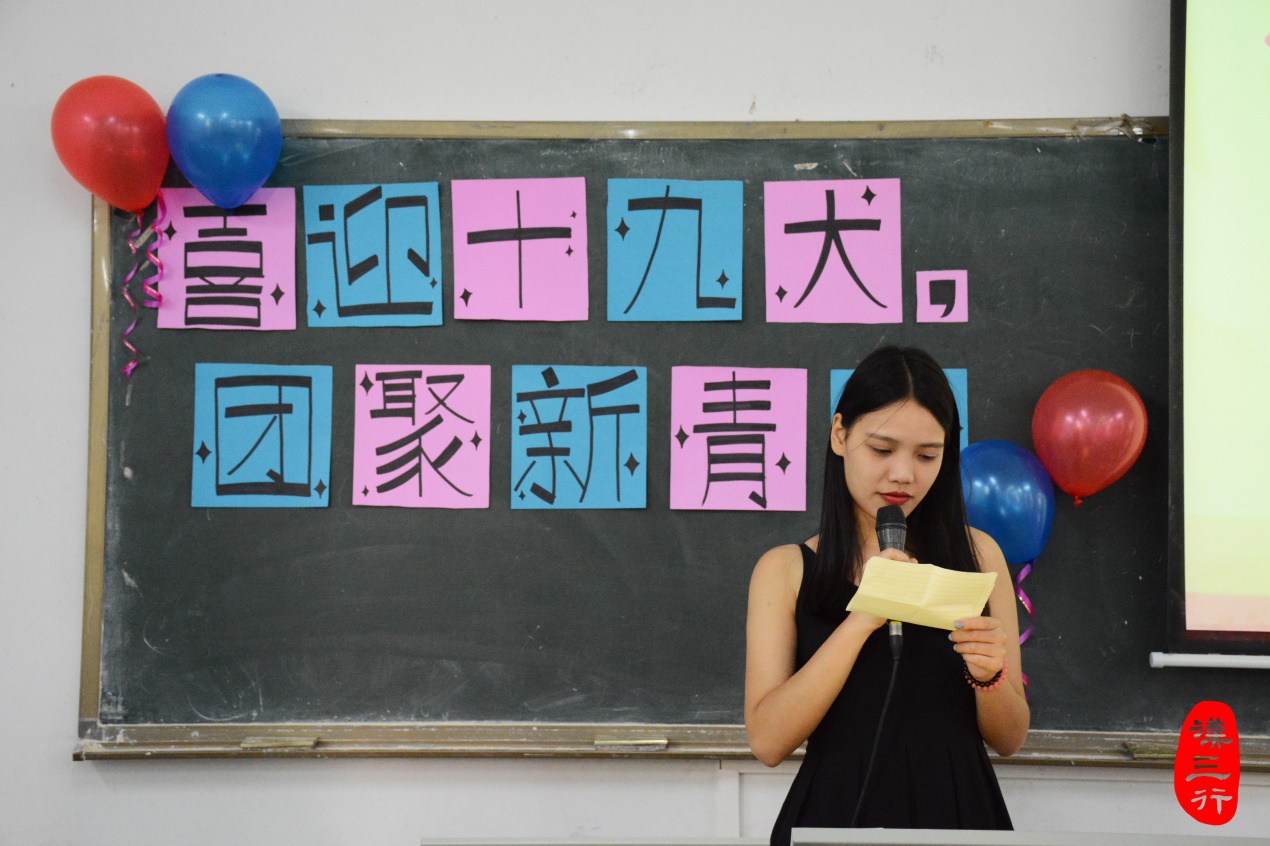 喜迎十九大，
团聚新青
三行